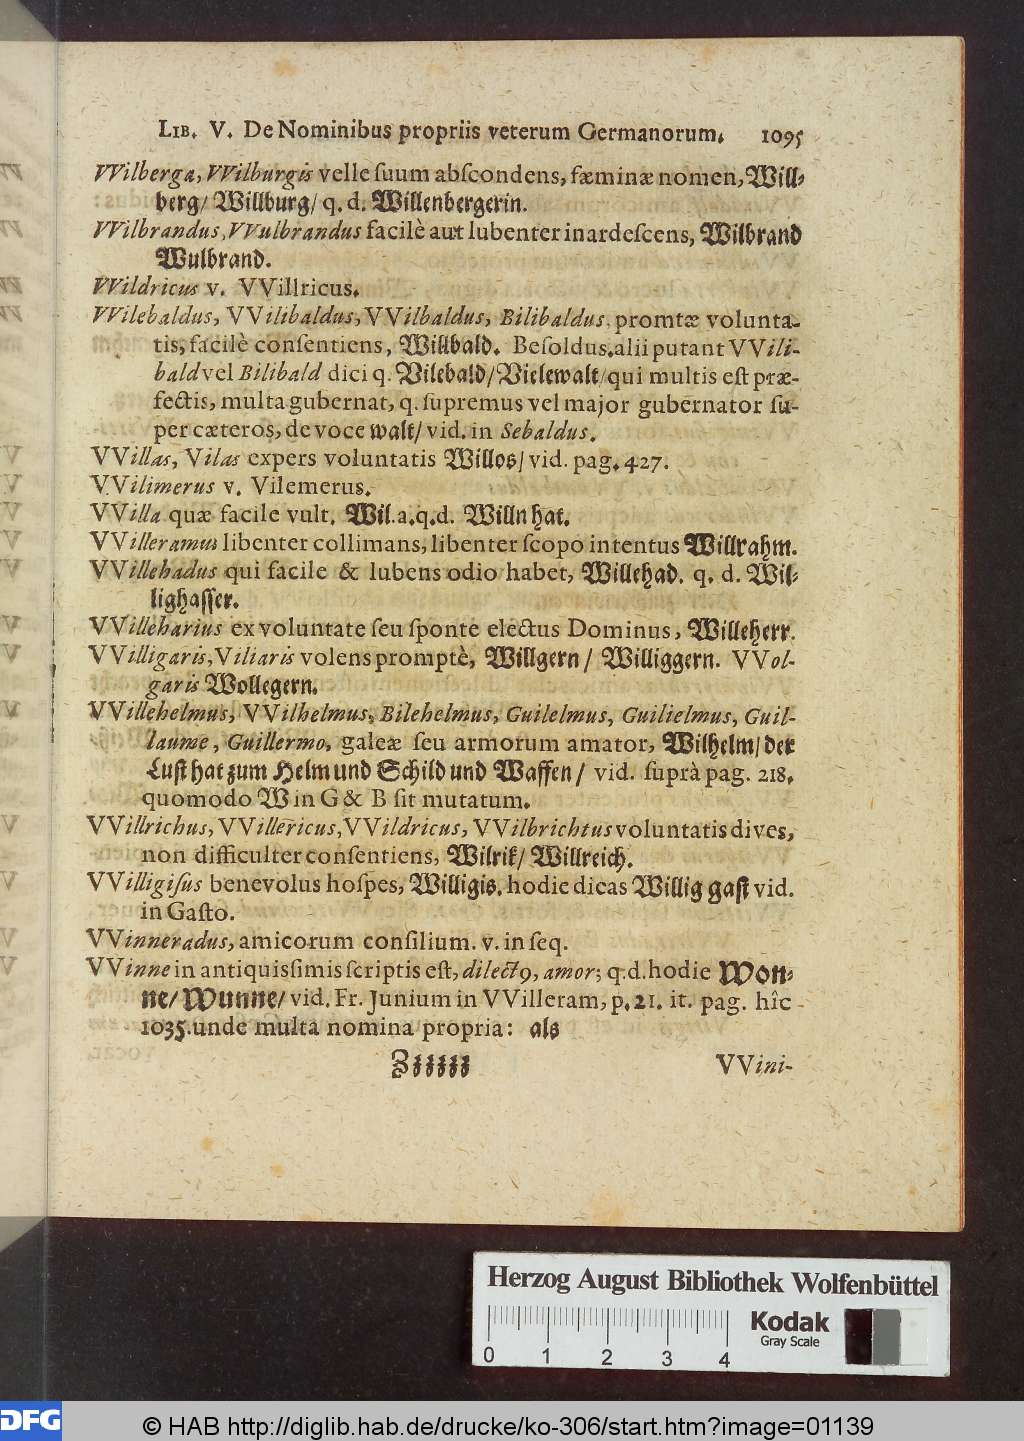 LIB. V. De Nominibus propriis veterum Germanorum. 1095
VVilberga, VVilburgis velle ſuum abſcondens, fæminæ nomen, Will-
berg/ Willburg/ q. d. Willenbergerin.
VVilbrandus, VVulbrandus facilè aut lubenter inardeſcens, Wilbrand
Wulbrand.
VVildricus v. VVillricus.
VVilebaldus, VVilibaldus, VVilbaldus, Bilibaldus, promtæ volunta-
tis, facilè conſentiens, Willbald. Beſoldus. alii putant VVili-
bald vel Bilibald dici q. Vilebald/ Vielewalt/ qui multis eſt præ-
fectis, multa gubernat, q. ſupremus vel major gubernator ſu-
per cæteros, de voce walt/ vid. in Sebaldus.
VVillas, Vilas expers voluntatis Willos/ vid. pag. 427.
VVilimerus v. Vilemerus.
VVilla quæ facile vult. Wil. a. q. d. Willn hat.
VVilleramus libenter collimans, libenter ſcopo intentus Willrahm.
VVillehadus qui facile & lubens odio habet, Willehad. q. d. Wil-
lighaſſer.
VVilleharius ex voluntate ſeu ſponte electus Dominus, Willeherr.
VVilligaris, Viliaris volens promptè, Willgern/ Williggern. VVol-
garis Wollegern.
VVillehelmus, VVilhelmus, Bilehelmus, Guilelmus, Guilielmus, Guil-
laume, Guillermo, galeæ ſeu armorum amator, Wilhelm/ der
Luſt hat zum Helm und Schild und Waffen/ vid. ſuprà pag. 218.
quomodo W in G & B ſit mutatum.
VVillrichus, VVillericus, VVildricus, VVilbrichtus voluntatis dives,
non difficulter conſentiens, Wilrik/ Willreich.
VVilligiſus benevolus hoſpes, Willigis. hodie dicas Willig gaſt vid.
in Gaſto.
VVinneradus, amicorum conſilium. v. in ſeq.
VVinne in antiquiſsimis ſcriptis eſt, dilectꝰ, amor; q. d. hodie Won-
ne/ Wunne/ vid. Fr. Junium in VVilleram, p. 21. it. pag. hîc
1035. unde multa nomina propria: als
Zzzzzz VVini-
Herzog August Bibliothek Wolfenbüttel
Kodak
Gray Scale
0 1 2 3 4
DFG © HAB http://diglib.hab.de/drucke/ko-306/start.htm?image=01139